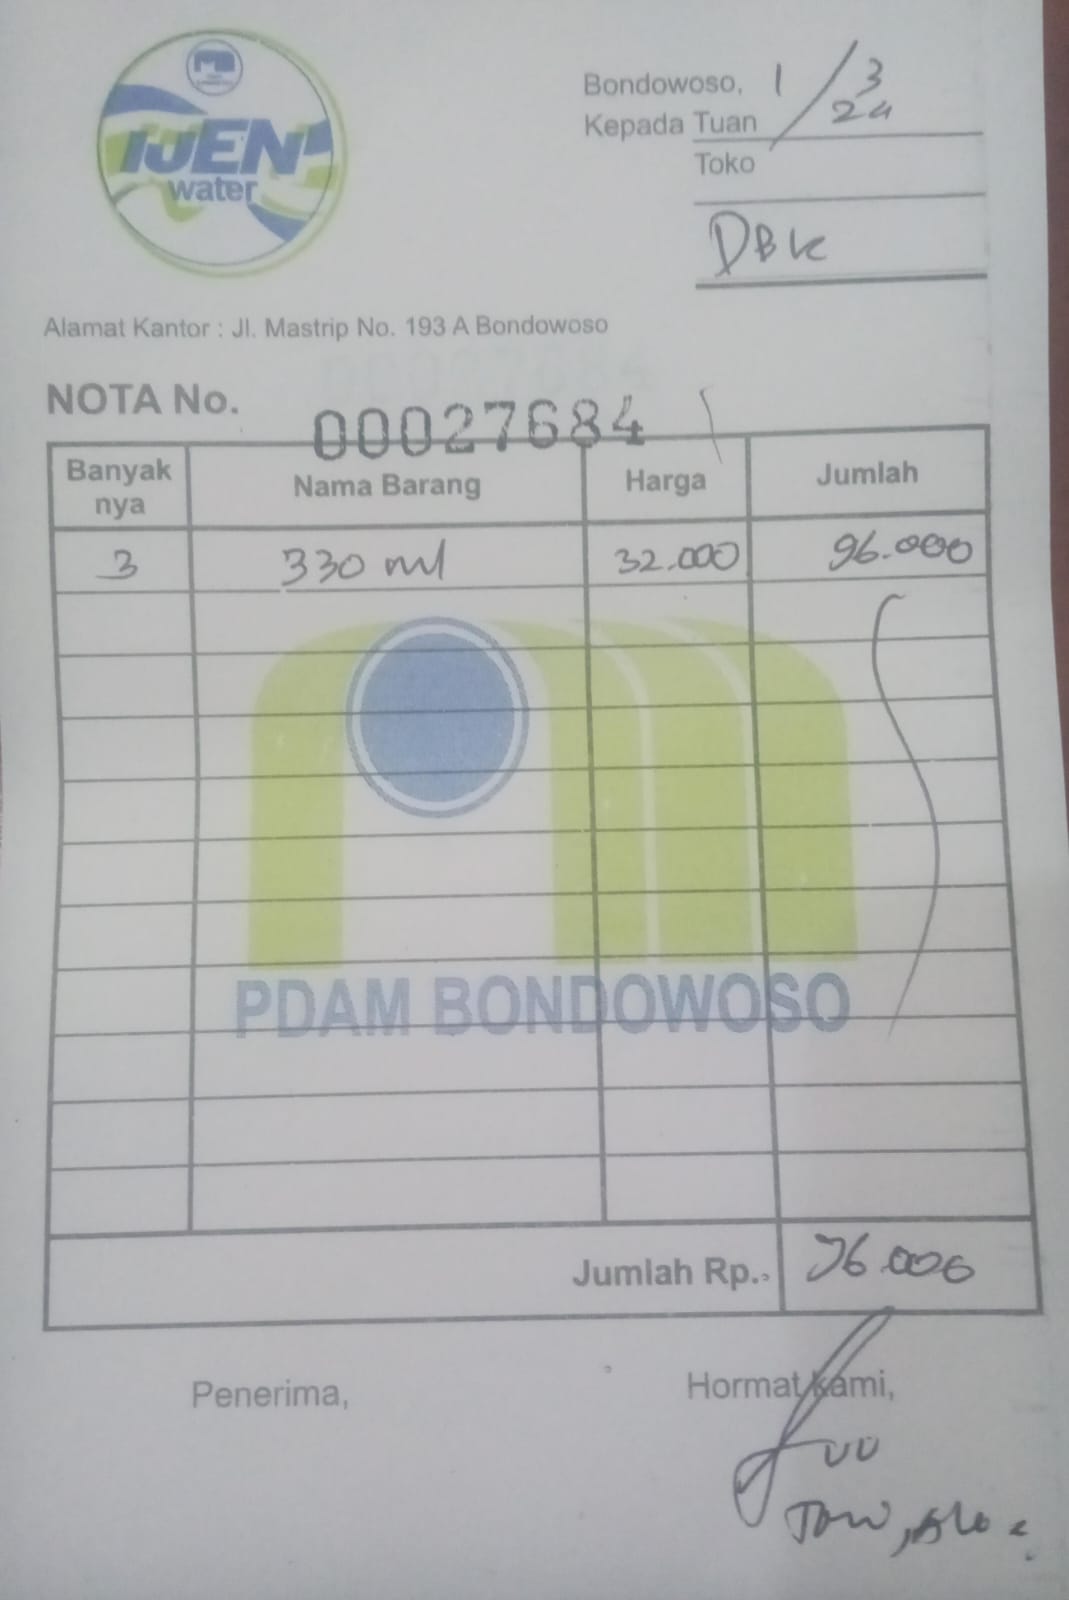 IJEN
water
Bondowoso, 1/3
24
Kepada Tuan
Toko
DBK
Alamat Kantor : Jl. Mastrip No. 193 A Bondowoso
NOTA No. 00027684
Banyak nya Nama Barang Harga Jumlah
3 330 ml 32.000 96.000
PDAM BONDOWOSO
Jumlah Rp. 96.000
Penerima, Hormat kami,